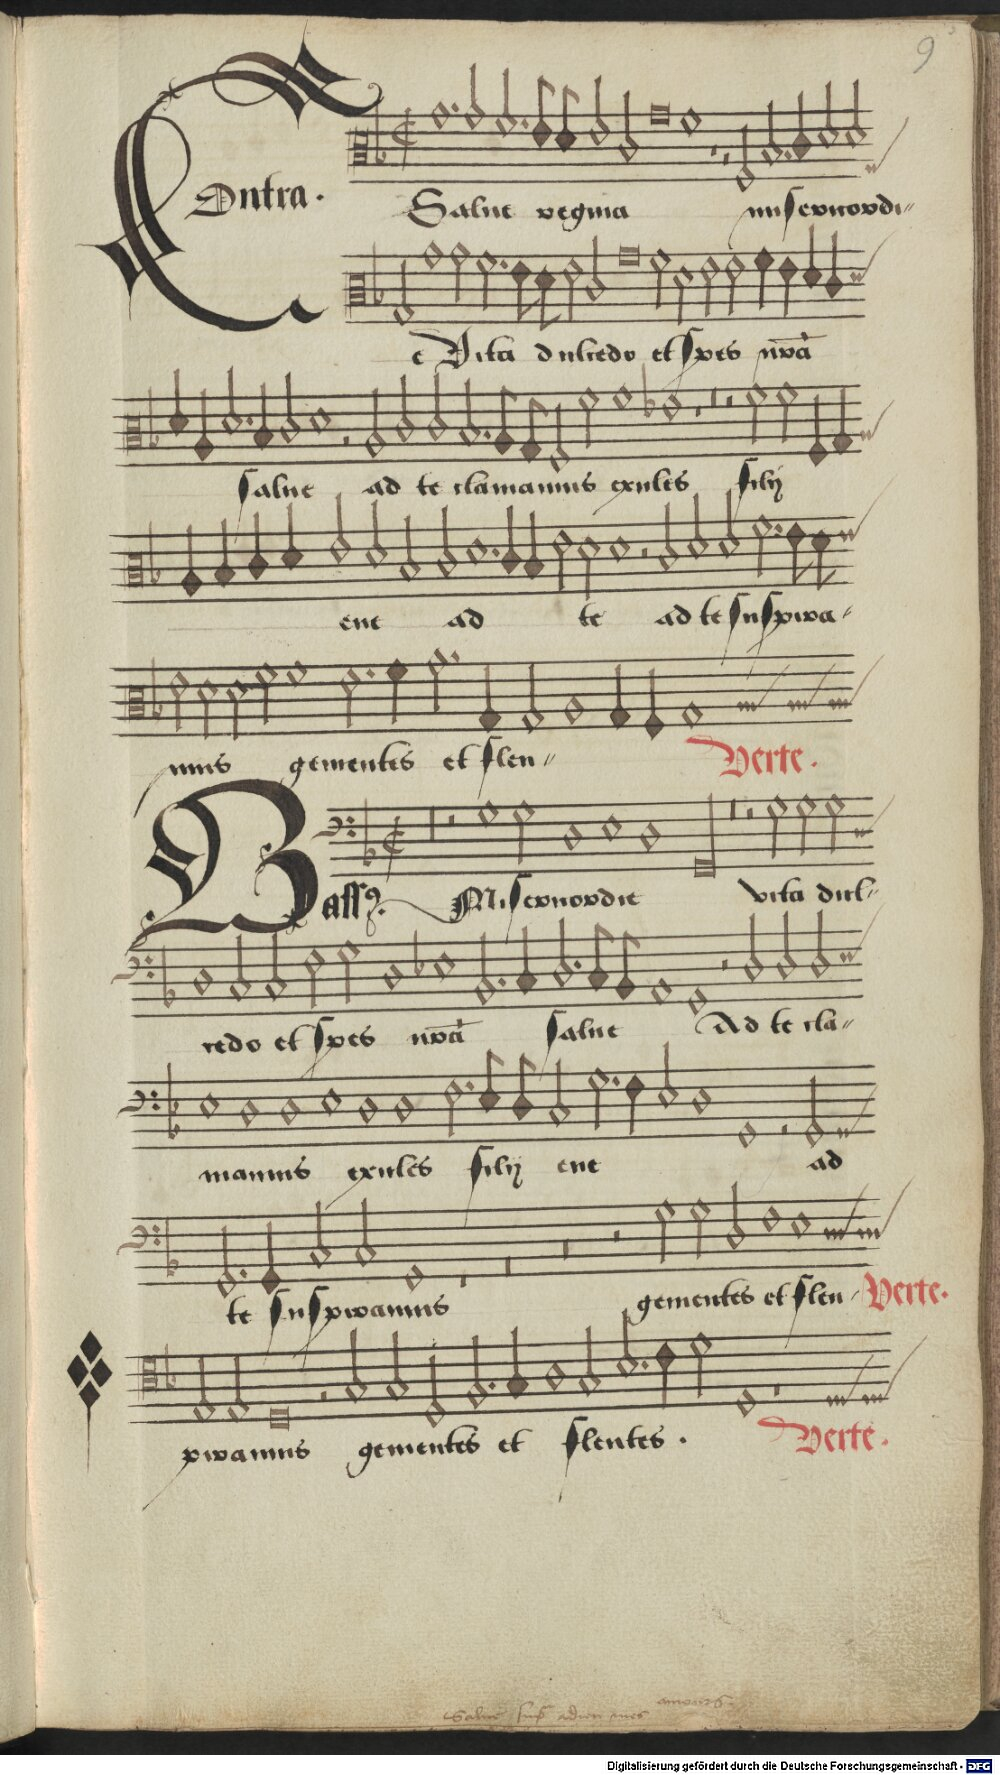 9
Contra.
Salue regina misericordi-
e Vita dulcedo et spes nr̃a
salue ad te clamamus exules filij
eue ad te ad te suspira-
mus gementes et flen-
Verte.
Bass9.
Misericordie vita dul-
cedo et spes nr̃a salue Ad te cla-
mamus exules filij eue ad
te suspiramus gementes et flen- Verte.
piramus gementes et flentes.
Verte.
amours.
Salue
adieu mes
Digitalisierung gefördert durch die Deutsche Forschungsgemeinschaft - DFG